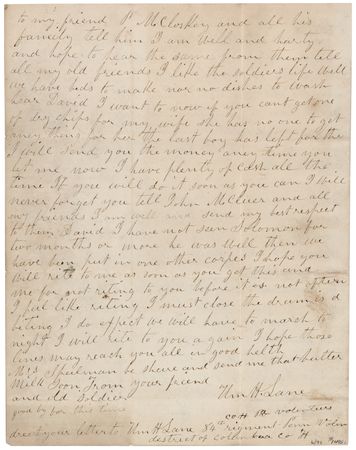 to my friend P McCloskey and all his
famiely tell him I am well and harty
and hope to hear the same from them tell
all my old freends I like the soldiers life well
we have beds to make nor no dishes to wash
dear David I want to now if you cant get one
of dry chips for my wife she has no one to get
aney thing for her the last boy has left for the
I will send you the money aney time you
let me now I have plenty of cash all the
time If you will do it soon as you can I will
never forget you tell John McCluer and all
my friends I am well and send my best respect
to them David I have not seen Solomon for
two months or more he was well then we
have been put in one other corpes I hope you
will rite to me as soon as you get this and
me for not riting to you before it es not often
I feel like riting I must close the drum is a
beting I do expect we will have to march to
night I will rite to you again I hope those
lines may reach you all in good helth
Mis Speilman be shure and send me that butter
Milk soon from your friend
and old Soldier Wm H Lane
good by for this time
co H 14 volunteers
direct your letter to Wm H Lane 84th rigment Penn Volen
district of Columbia co H